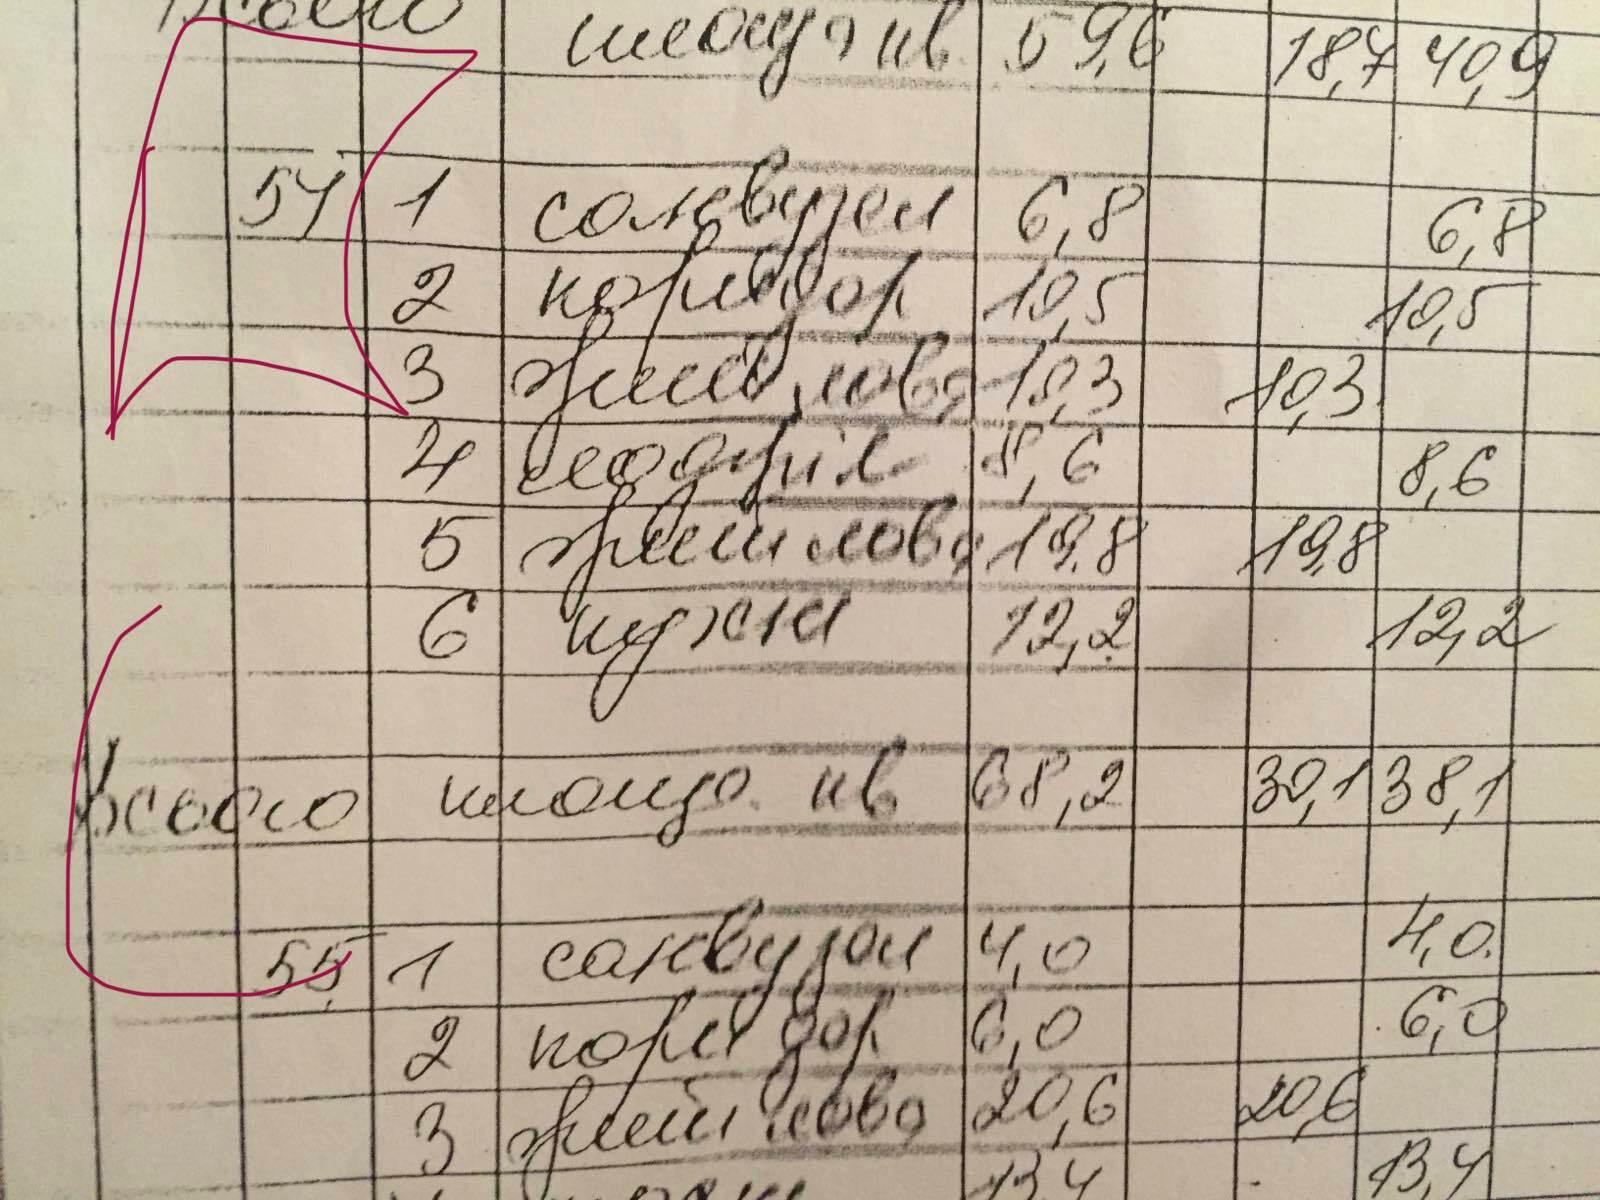 Всього площа кв 59,6 18,7 40,9
54 1 санвузел 6,8 6,8
2 коридор 10,5 10,5
3 житлова 10,3 10,3
4 8,6 8,6
5 житлова 19,8 19,8
6 кухня 12,2 12,2
Всього площа кв 68,2 30,1 38,1
55 1 санвузол 4,0 4,0
2 коридор 6,0 6,0
3 житлова 20,6 20,6
13,4 13,4